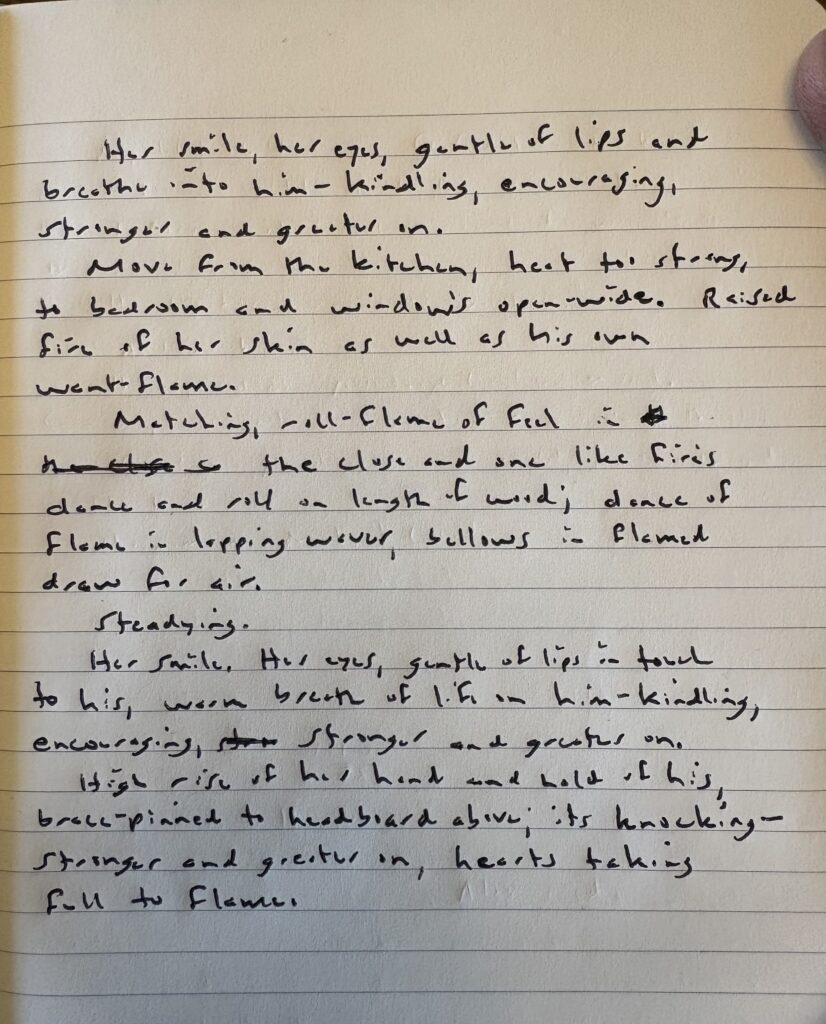 Her smile, her eyes, gentle of lips and
breathe into him-kindling, encouraging,
stronger and greater on.
Move from the kitchen, heat too strong,
to bedroom and windows open-wide. Raised
fire of her skin as well as his own
want-flame.
Matching, roll-flame of feel in
the close and one like fires
dance and roll on length of wood; dance of
flame in lapping waver, bellows in flamed
draw for air.
Steadying.
Her smile. Her eyes, gentle of lips in touch
to his, warm breath of life on him-kindling,
encouraging, stronger and greater on.
High rise of her hand and hold of his,
brace-pinned to headboard above; its knocking-
stronger and greater on, hearts taking
full to flame.